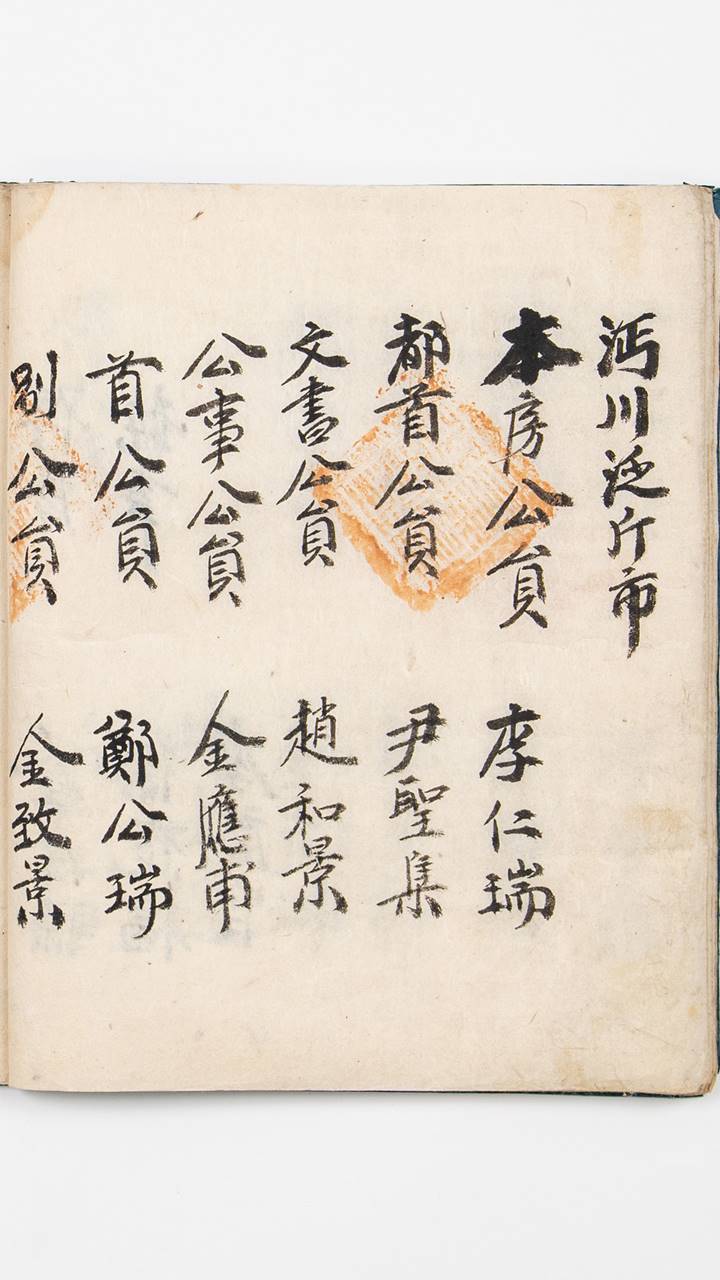 沔川泛斤市
本房公員 李仁瑞
都首公員 尹聖集
文書公員 趙和景
公事公員 金應甫
首公員 鄭公瑞
別公員 金致景